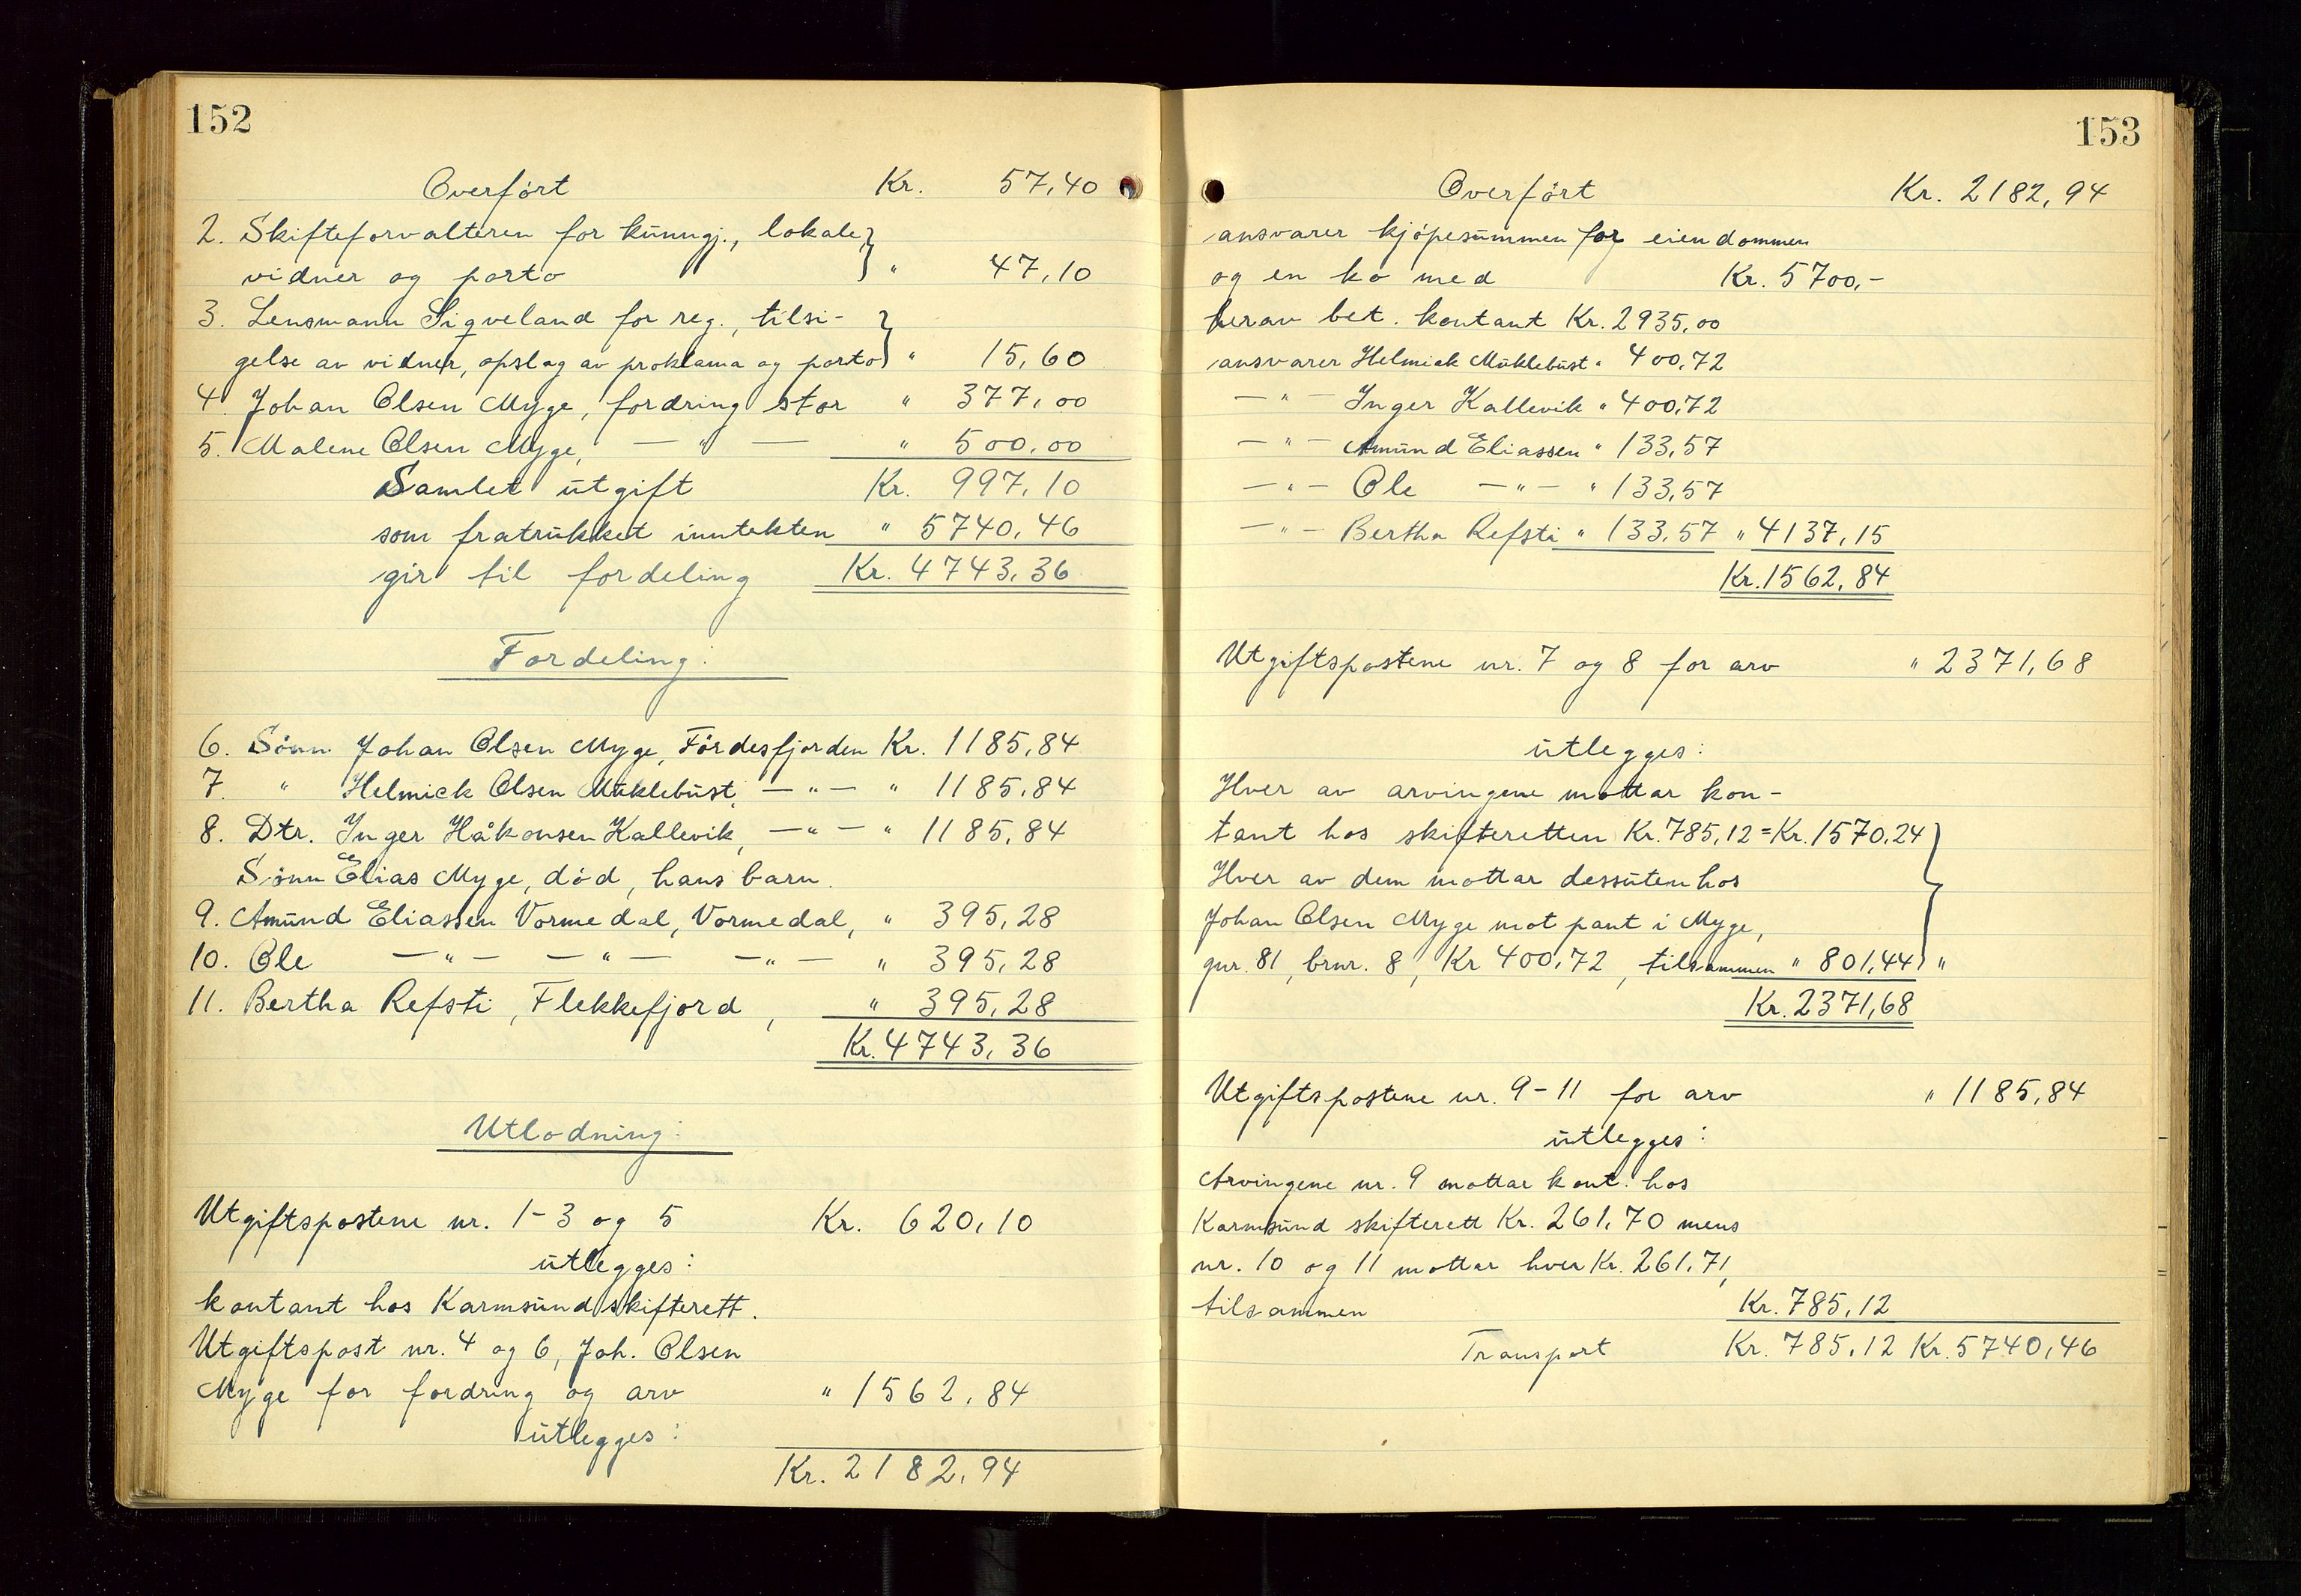 152
Overført Kr. 57,40
2. Skifteforvalteren for kunngj., lokale,
vidner og porto " 47,10
3. Lensmann Sigveland for reg., tilsi-
gelse av vidner, opslag av proklama og porto " 15,60
4. Johan Olsen Myge, fordring stor " 377,00
5. Malene Olsen Myge, — " — " 500,00
Samlet utgift Kr. 997,10
som fratrukket inntekten " 5740,46
gir til fordeling Kr. 4743,36
Fordeling:
6. Sønn Johan Olsen Myge, Førdesfjorden Kr. 1185,84
7. " Helmick Olsen Myklebust, — " — " 1185,84
8. Dtr. Inger Håkonsen Kallevik, — " — " 1185,84
Sønn Elias Myge, død, hans barn.
9. Amund Eliassen Vormedal, Vormedal, " 395,28
10. Ole — " — — " — — " — " 395,28
11. Bertha Refsti, Flekkefjord, " 395,28
Kr. 4743,36
Utlodning:
Utgiftspostene nr. 1-3 og 5 Kr. 620,10
utlegges:
kontant hos Karmsund skifterett.
Utgiftspost nr. 4 og 6, Joh. Olsen
Myge for fordring og arv " 1562,84
utlegges:
Kr. 2182,94
153
Overført Kr. 2182,94
ansvarer kjøpesummen for eiendommen
og en ko med Kr. 5700,-
herav bet. kontant Kr. 2935,00
ansvarer Helmick Myklebust " 400,72
— " — Inger Kallevik " 400,72
— " — Amund Eliassen " 133,57
— " — Ole — " — " 133,57
— " — Bertha Refsti " 133,57 " 4137,15
Kr. 1562,84
Utgiftspostene nr. 7 og 8 for arv " 2371,68
utlegges:
Hver av arvingene mottar kon-
tant hos skifteretten Kr. 785,12 = Kr. 1570,24
Hver av dem mottar dessuten hos
Johan Olsen Myge mot pant i Myge,
gnr. 81, brnr. 8, Kr 400,72, tilsammen " 801,44 "
Kr. 2371,68
Utgiftspostene nr. 9-11 for arv " 1185,84
utlegges:
Arvingene nr. 9 mottar kont. hos
Karmsund skifterett Kr. 261,70 mens
nr. 10 og 11 mottar hver Kr. 261,71,
tilsammen Kr. 785,12
Transport Kr. 785,12 Kr. 5740,46